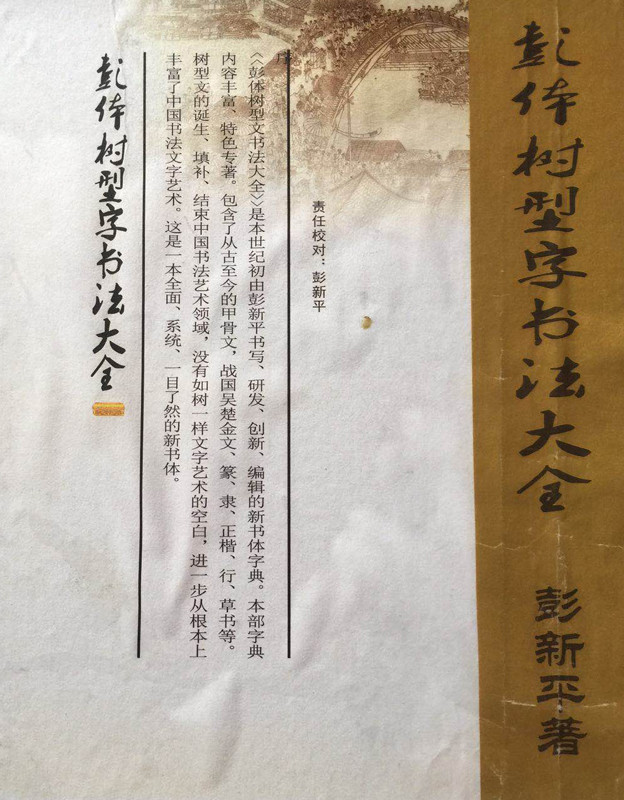 彭体树型字书法大全
彭新平著
责任校对：彭新平
序
《彭体树型文书法大全》是本世纪初由彭新平书写、研发、创新、编辑的新书体字典。本部字典
内容丰富、特色专著。包含了从古至今的甲骨文，战国吴楚金文、篆、隶、正楷、行、草书等。
树型文的诞生、填补、结束中国书法艺术领域，没有如树一样文字艺术的空白，进一步从根本上
丰富了中国书法文字艺术。这是一本全面、系统、一目了然的新书体。
彭体树型字书法大全